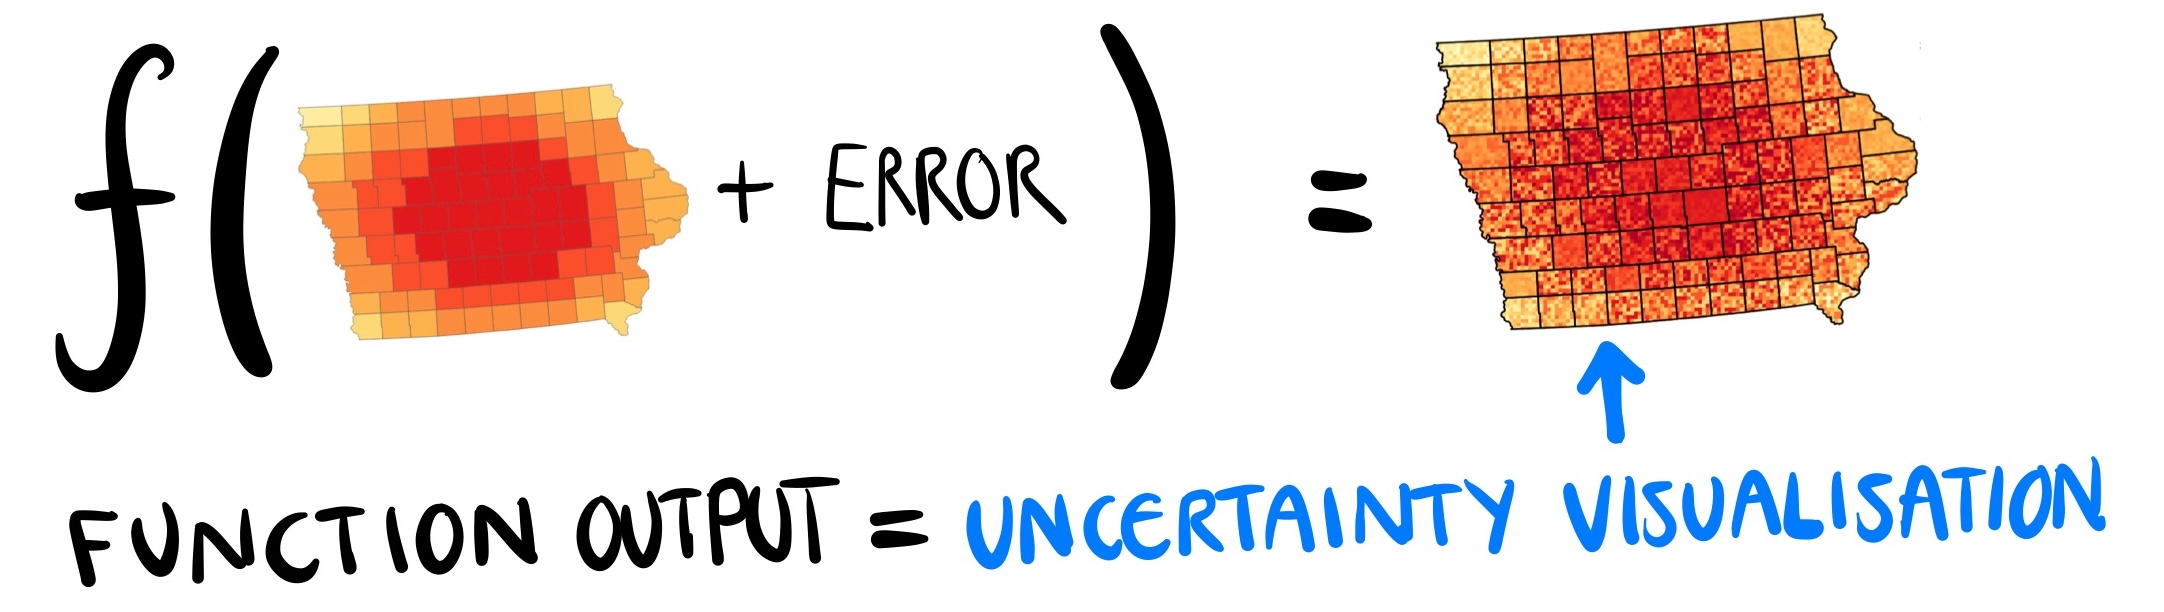 f( + ERROR ) =
FUNCTION OUTPUT = UNCERTAINTY VISUALISATION